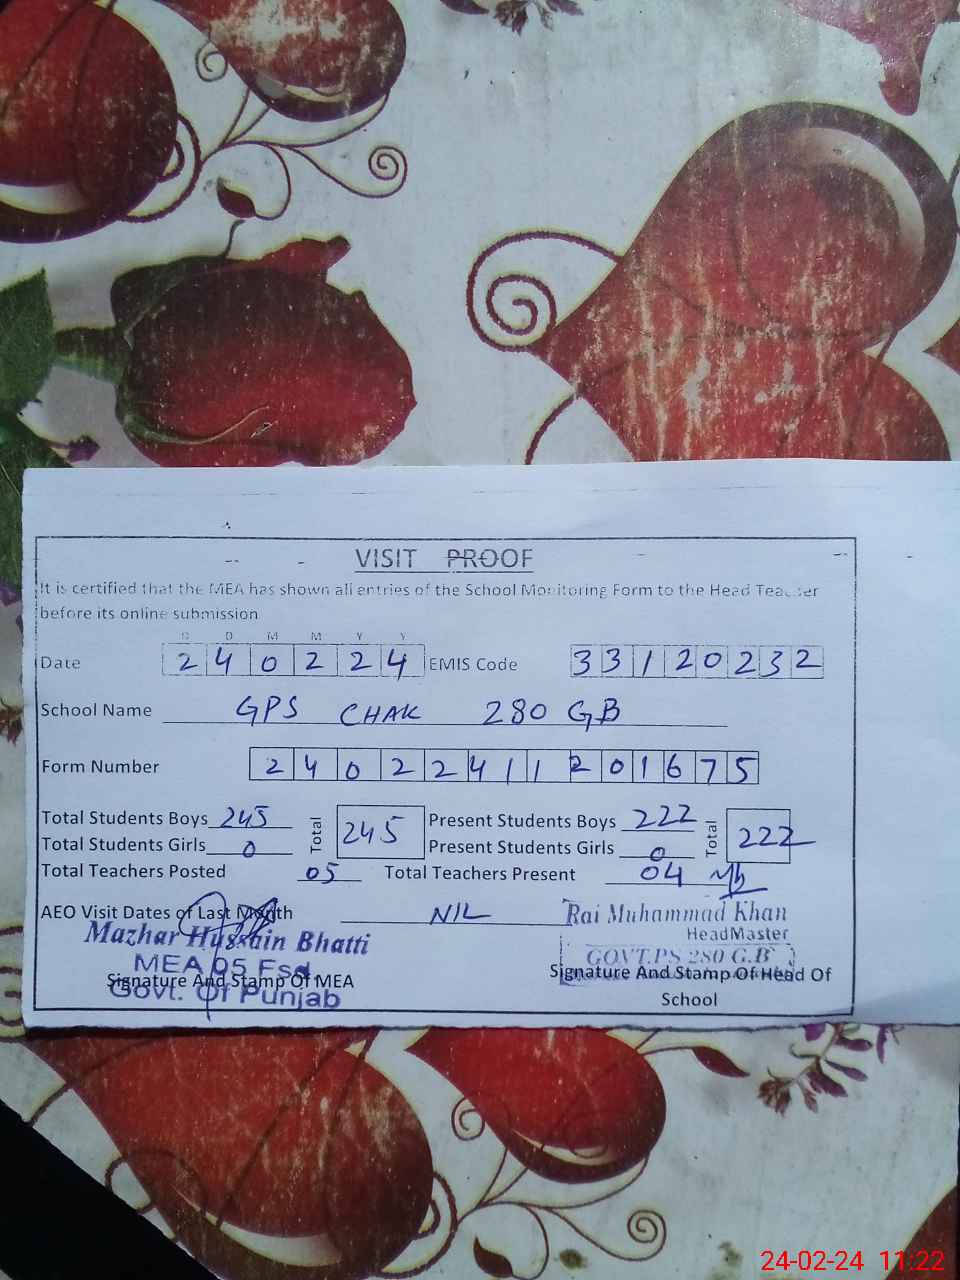 VISIT PROOF
It is certified that the MEA has shown all entries of the School Monitoring Form to the Head Teacher
before its online submission
D D M M Y Y
Date 2 4 0 2 2 4 EMIS Code 3 3 1 2 0 2 3 2
School Name GPS CHAK 280 GB
Form Number 2 4 0 2 2 4 1 1 2 0 1 6 7 5
Total Students Boys 245 Total 245 Present Students Boys 222 Total 222
Total Students Girls 0 Present Students Girls 0
Total Teachers Posted 05 Total Teachers Present 04
AEO Visit Dates of Last Month NIL
Mazhar Hussain Bhatti
MEA 05 Fsd
Govt. Of Punjab
Signature And Stamp Of MEA
Rai Muhammad Khan
HeadMaster
GOVT.PS 280 G.B
Signature And Stamp Of Head Of
School
24-02-24 11:22